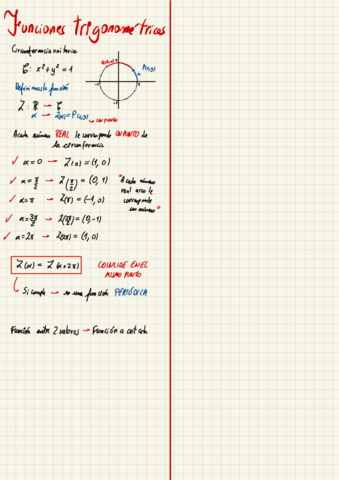 Funciones trigonométricas
Circunferencia unitaria
C: x²+y²=1
Definimos la función
Z: R → C
α → Z(α) = P(x,y)
↳ un punto
A cada número REAL le corresponde UN PUNTO de
la circunferencia
✓ α=0 → Z(0) = (1,0)
✓ α=π/2 → Z(π/2) = (0,1)
✓ α=π → Z(π) = (-1,0)
✓ α=3π/2 → Z(3π/2) = (0,-1)
✓ α=2π → Z(2π) = (1,0)
"A cada número
real
le
corresponde
un número"
Z(α) = Z(α+2π)
COINCIDE EN EL
MISMO PUNTO
Si cumple → es una función PERIÓDICA
Función entre 2 valores → Función acotada